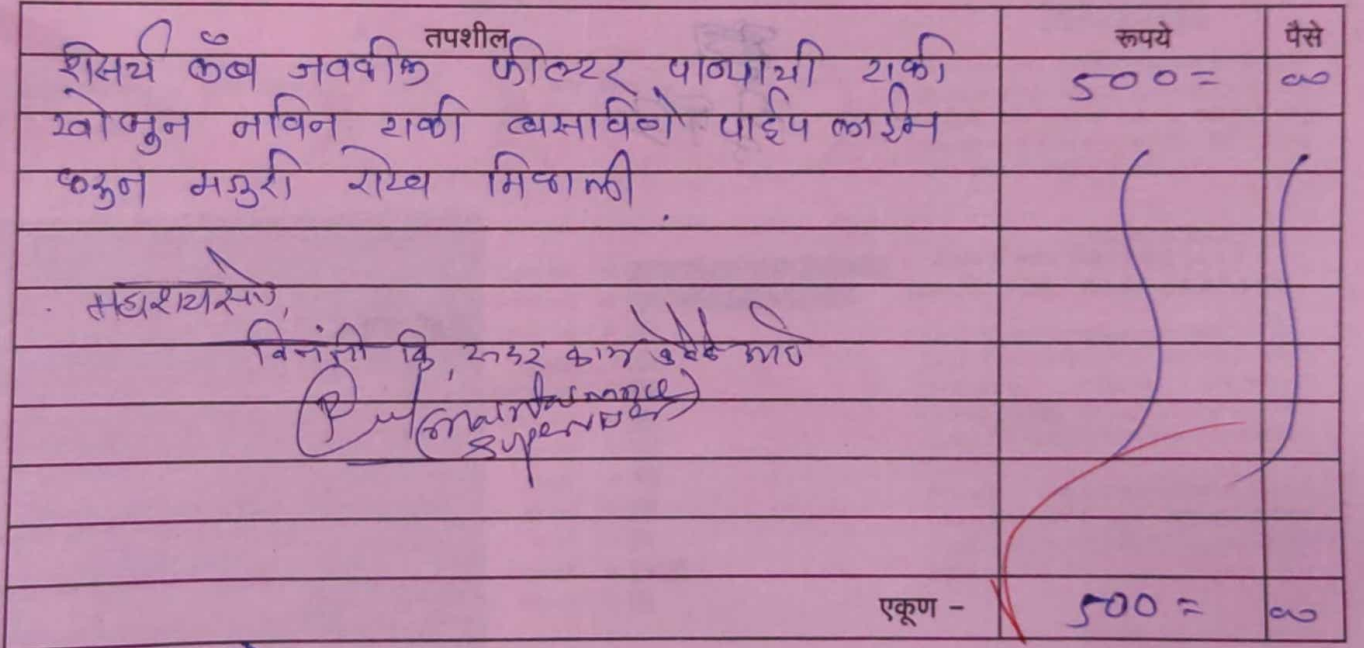 तपशील रूपये पैसे
रिसर्च लॅब जवळील फील्टर पाण्याची टाकी 500= 00
खोलुन नविन टाकी बसाविणे पाईप लाईन
करुन मजुरी रोख मिळाली.
महाशयसो,
विनंती कि, सदर काम केले आहे
(Maintainance
Supervisor)
एकूण - 500= 00